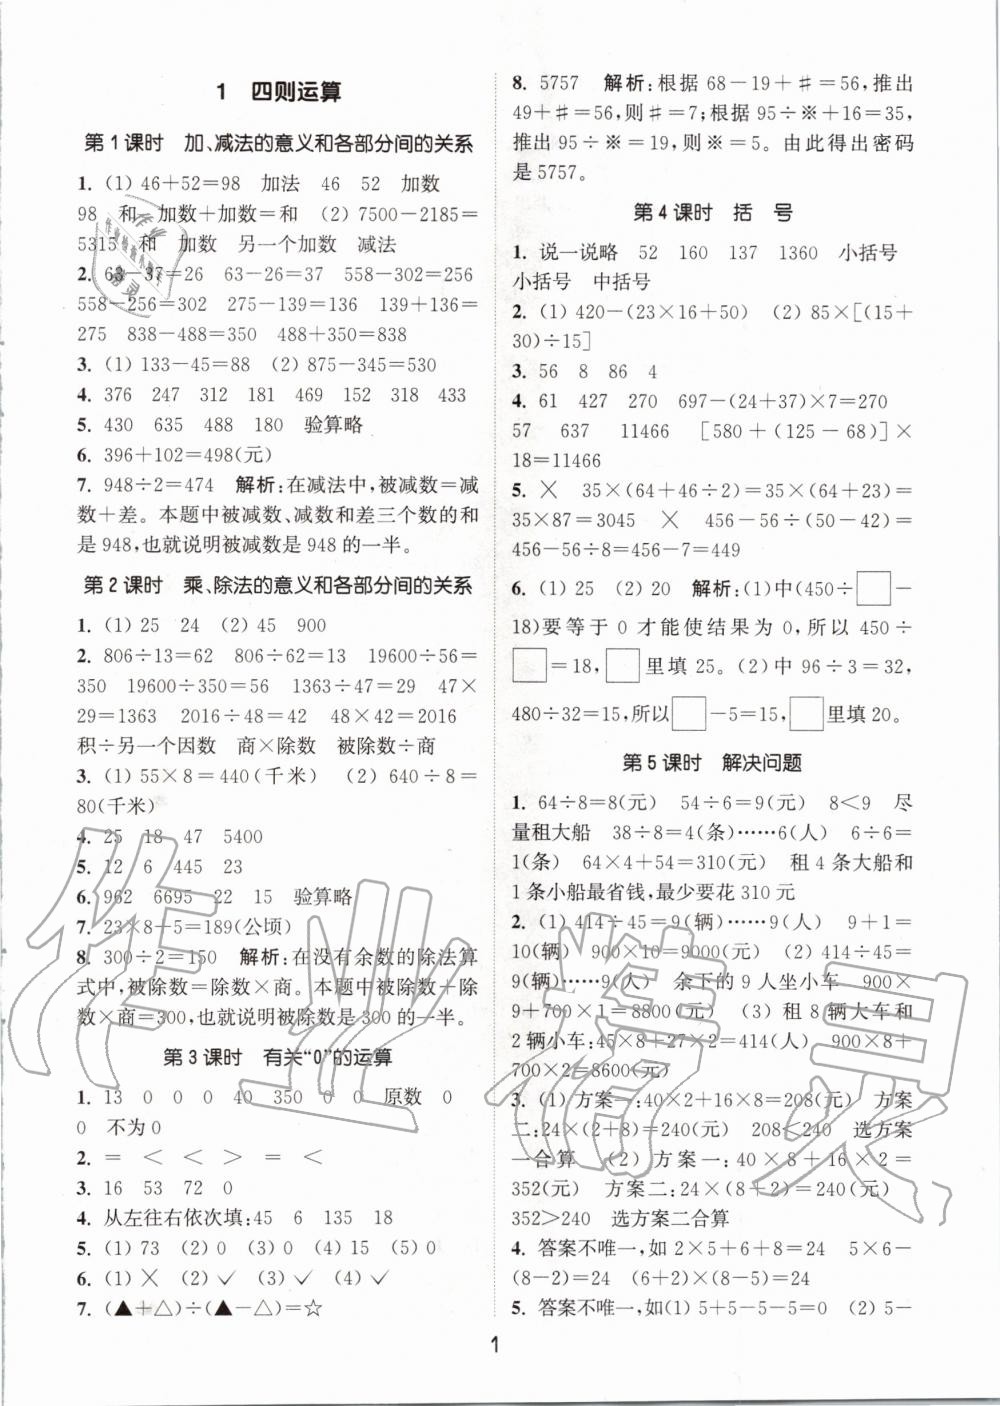 1 四则运算
第1课时 加、减法的意义和各部分间的关系
1. (1) 46+52=98 加法 46 52 加数
98 和 加数+加数=和 (2) 7500-2185=
5315 和 加数 另一个加数 减法
2. 63-37=26 63-26=37 558-302=256
558-256=302 275-139=136 139+136=
275 838-488=350 488+350=838
3. (1) 133-45=88 (2) 875-345=530
4. 376 247 312 181 469 152 318 433
5. 430 635 488 180 验算略
6. 396+102=498(元)
7. 948÷2=474 解析:在减法中,被减数=减
数+差。本题中被减数、减数和差三个数的和
是948,也就说明被减数是948的一半。
第2课时 乘、除法的意义和各部分间的关系
1. (1) 25 24 (2) 45 900
2. 806÷13=62 806÷62=13 19600÷56=
350 19600÷350=56 1363÷47=29 47×
29=1363 2016÷48=42 48×42=2016
积÷另一个因数 商×除数 被除数÷商
3. (1) 55×8=440(千米) (2) 640÷8=
80(千米)
4. 25 18 47 5400
5. 12 6 445 23
6. 962 6695 22 15 验算略
7. 23×8+5=189(公顷)
8. 300÷2=150 解析:在没有余数的除法算
式中,被除数=除数×商。本题中被除数+除
数×商=300,也就说明被除数是300的一半。
第3课时 有关“0”的运算
1. 13 0 0 0 40 350 0 0 原数 0
0 不为0
2. = < < > = <
3. 16 53 72 0
4. 从左往右依次填:45 6 135 18
5. (1) 73 (2) 0 (3) 0 (4) 74 (5) 0
6. (1) × (2) ✓ (3) ✓ (4) ✓
7. (▲+△)÷(▲-△)=☆
8. 5757 解析:根据68-19+♯=56,推出
49+♯=56,则♯=7;根据95÷※+16=35,
推出95÷※=19,则※=5。由此得出密码
是5757。
第4课时 括 号
1. 说一说略 52 160 137 1360 小括号
小括号 中括号
2. (1) 420-(23×16+50) (2) 85×[(15+
30)÷15]
3. 56 8 86 4
4. 61 427 270 697-(24+37)×7=270
57 637 11466 [580+(125-68)]×
18=11466
5. × 35×(64+46÷2)=35×(64+23)=
35×87=3045 × 456-56÷(50-42)=
456-56÷8=456-7=449
6. (1) 25 (2) 20 解析:(1)中(450÷□-
18)要等于0才能使结果为0,所以450÷
□=18,□里填25。(2)中96÷3=32,
480÷32=15,所以□-5=15,□里填20。
第5课时 解决问题
1. 64÷8=8(元) 54÷6=9(元) 8<9 尽
量租大船 38÷8=4(条)……6(人) 6÷6=
1(条) 64×4+54=310(元) 租4条大船和
1条小船最省钱,最少要花310元
2. (1) 414÷45=9(辆)……9(人) 9+1=
10(辆) 900×10=9000(元) (2) 414÷45=
9(辆)……9(人) 余下的9人坐小车 900×
9+700×1=8800(元) (3) 租8辆大车和
2辆小车:45×8+27×2=414(人) 900×8+
700×2=8600(元)
3. (1) 方案一:40×2+16×8=208(元) 方案
二:24×(2+8)=240(元) 208<240 选方案
一合算 (2) 方案一:40×8+16×2=
352(元) 方案二:24×(8+2)=240(元)
352>240 选方案二合算
4. 答案不唯一,如2×5+6+8=24 5×6-
(8-2)=24 (6+2)×(8-5)=24
5. 答案不唯一,如(1) 5+5-5-5=0 (2) 5-
1
作业精灵